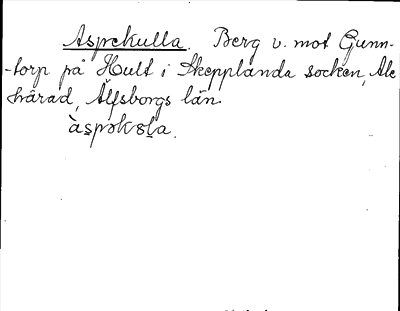 Aspekulla. Berg v. mot Gunn-
-torp på Hult i Skepplanda socken, Ale
härad, Älfsborgs län.
àspəkɷla.